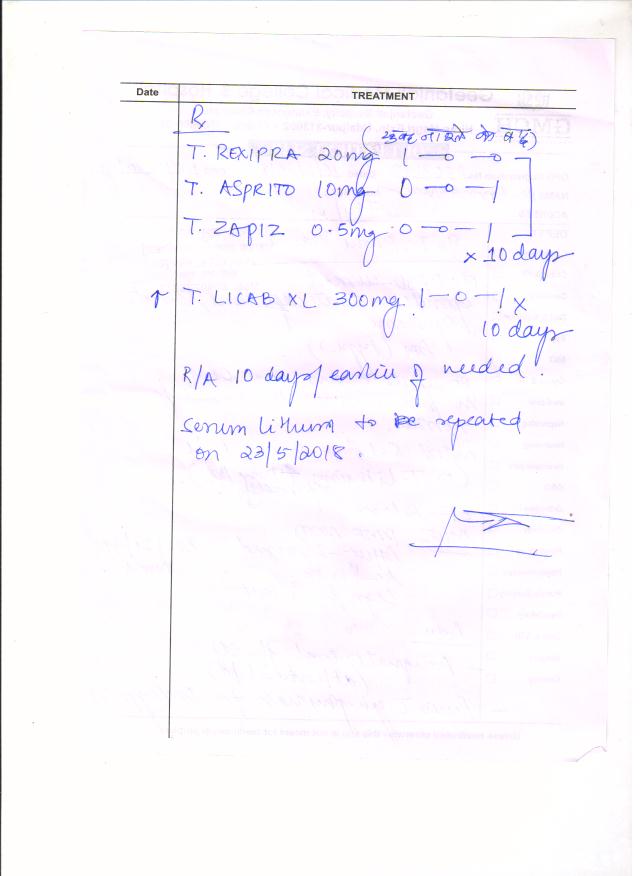 Date TREATMENT
Rx
(सुबह नाश्ते के बाद)
T. REXIPRA 20mg 1 — 0 — 0
T. ASPRITO 10mg 0 — 0 — 1
T. ZAPIZ 0.5mg 0 — 0 — 1
x 10 days
↑ T. LICAB XL 300mg 1 — 0 — 1 x
10 days
R/A 10 days/earlier if needed.
Serum Lithium to be repeated
on 23/5/2018.